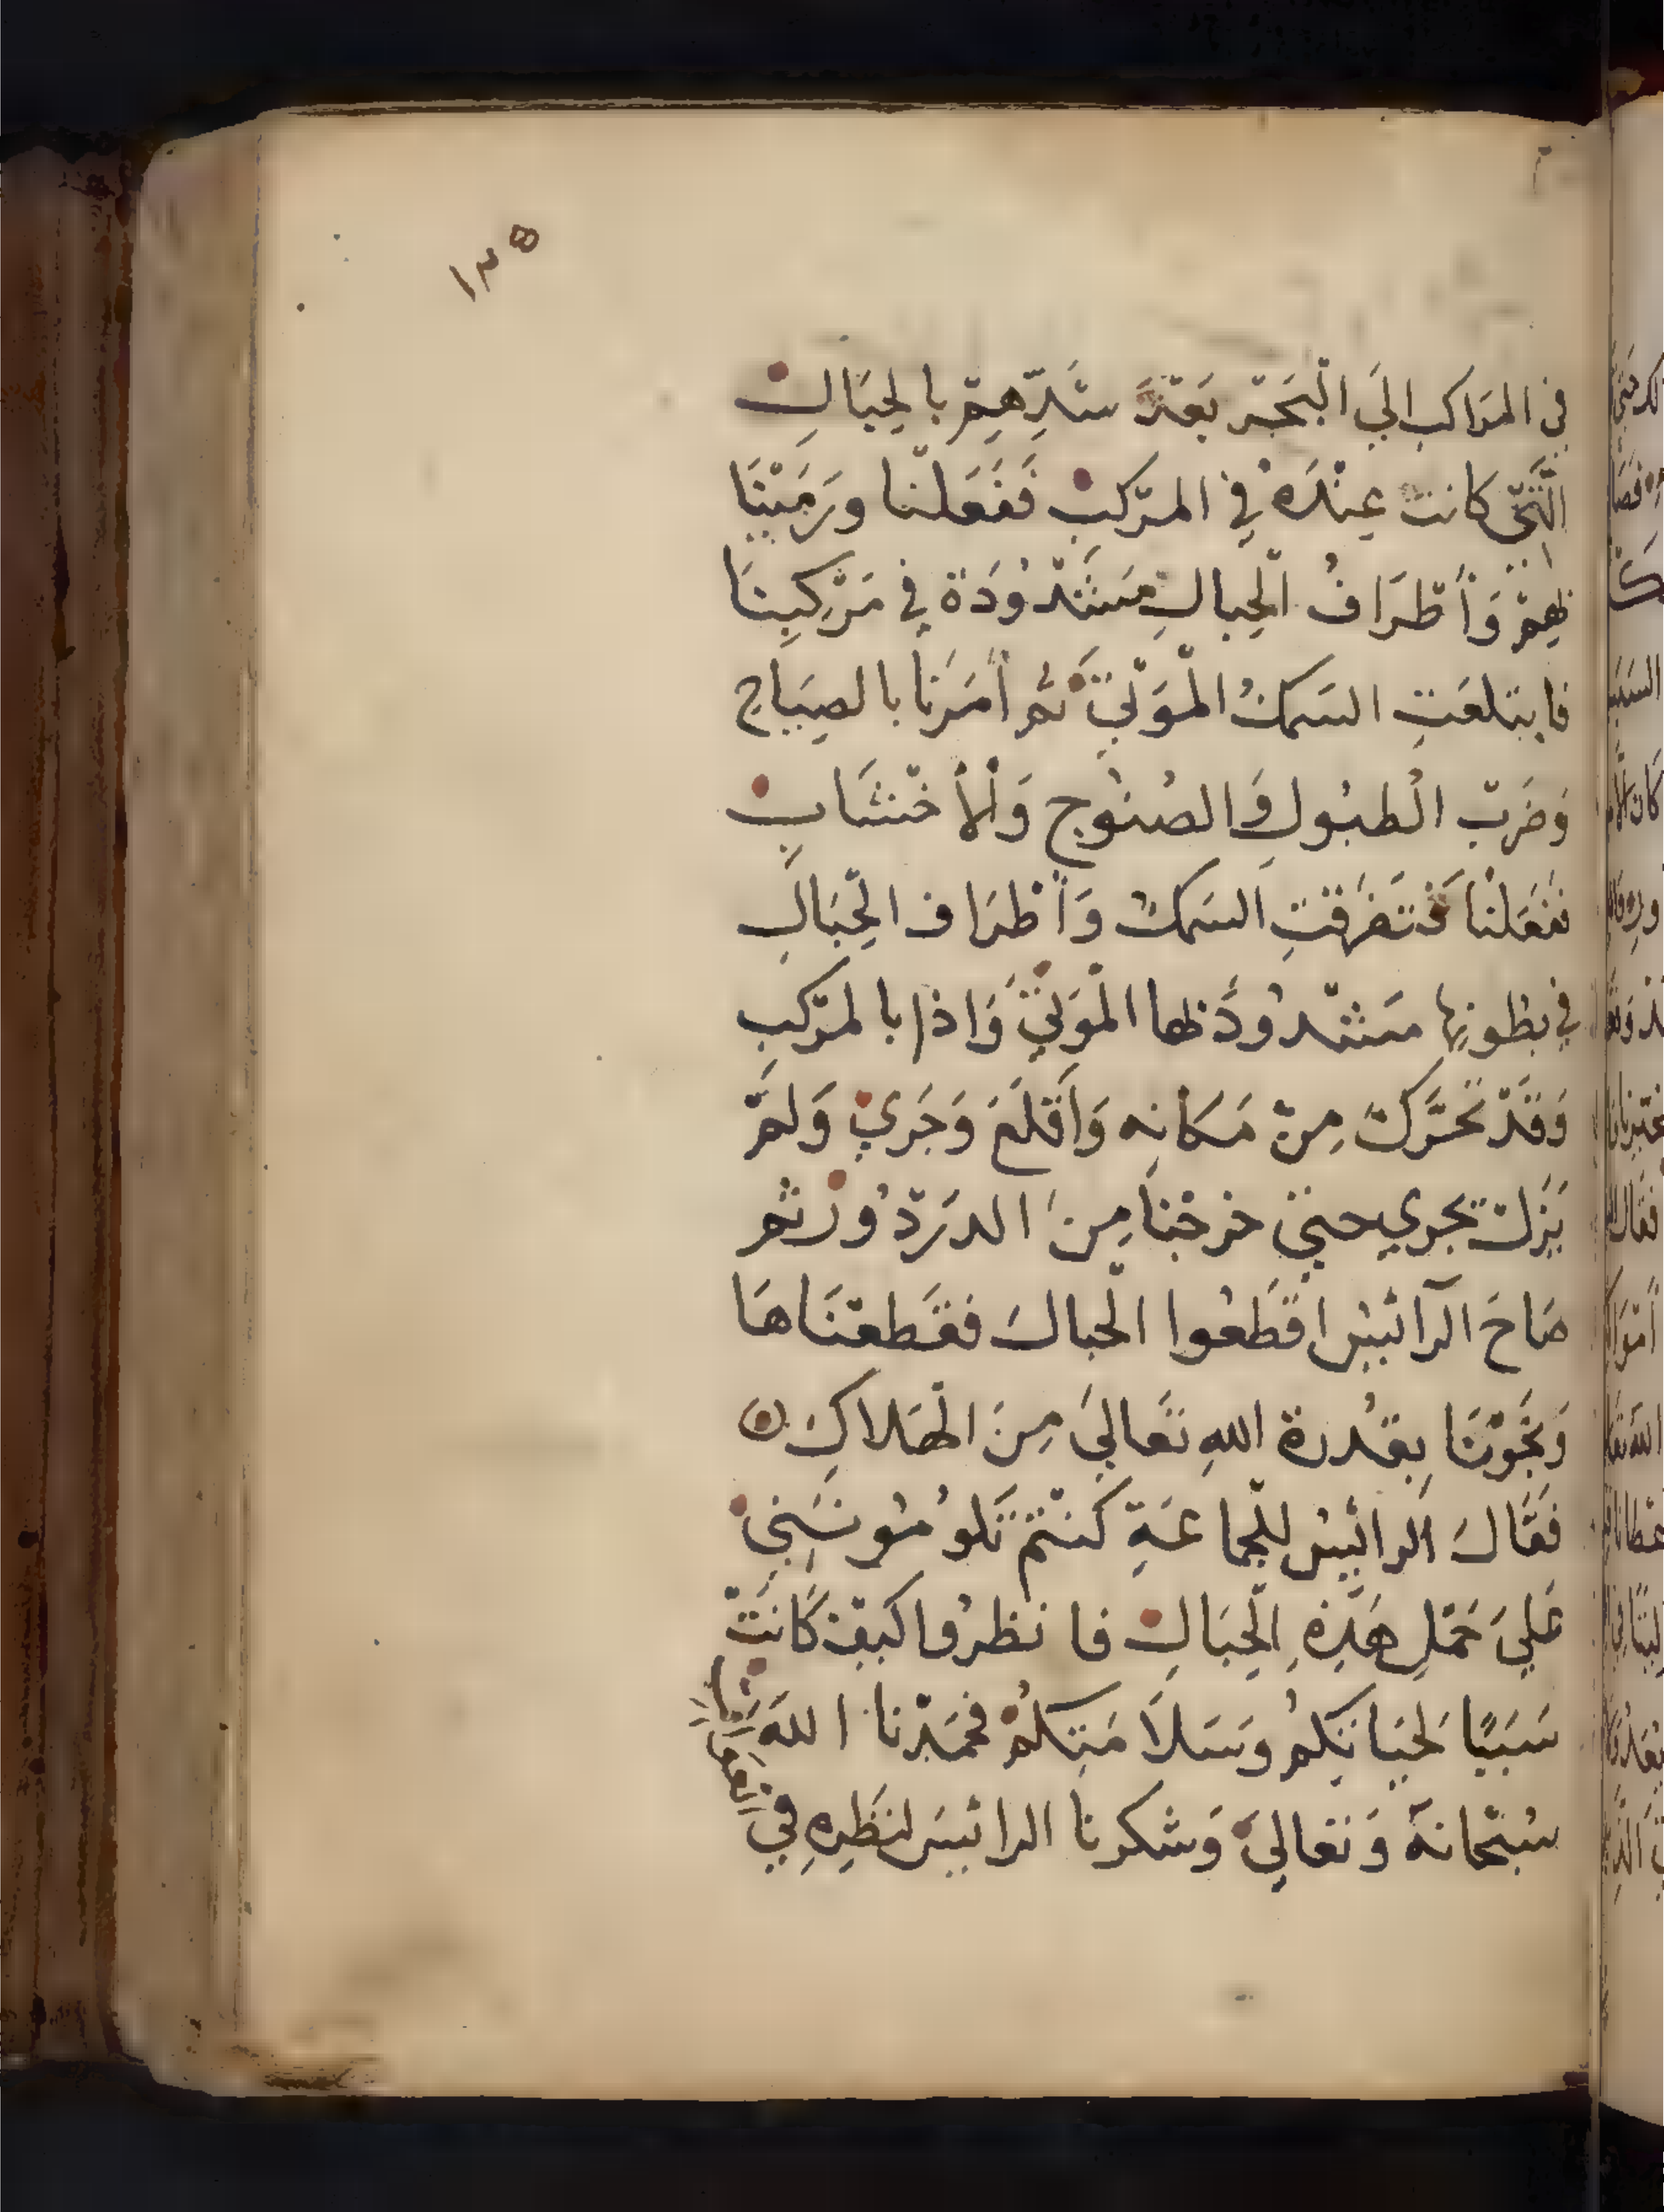 ١٣٥
في المَرَاكب اليَ الْبَحْر بَعْدَ شَدِّهِمْ بالحِبَالِ
الَّتي كانت عِنْدَهُ في المرْكبِ فَفَعَلْنا ورَمَيْنَا
بهِمْ وَأَطْرَافُ الْحِبالِ مَشْدُودَة في مَرْكبِنَا
فابتلعَتِ السَمكُ الْمَوْتيَ ثم أَمَرَنا بالصِيَاح
وَضَربْ الْطبُولِ وَالصُنُوج وَالْأَخْشَابِ
ففعَلْنا فَتفَرقتِ السَمكُ وَأَطْرَاف الْحِبَالِ
في بطُونِها مَشْدُودَ بها الْمَوتيَ وَاذا بالمَرْكبِ
وَقَدْ تَحَرَّكَ مِنْ مَكَانِه وَأَقلَعَ وَجَرَيْ وَلمْ
يَزَلْ يجري حتيَ خرجْنا مِنَ الدرْدُورْ ثم
صَاحَ الرائيسُ اقْطَعُوا الْحبالَ فقَطعْنَاهَا
وَنَجَوْنَا بِقُدْرة اللهِ تَعَاليَ مِنَ الْهَلاكِ ۞
فَقَالَ الرائيسُ لِلْجماعَةِ كُنْتمْ تَلُومُونَنِيْ
عَليَ حَمْلِ هَذِهِ الْحِبَالِ فانظرُوا كيفَ كَانَتْ
سَبَبًا لحَيَاتكمْ وَسَلَامَتِكُمْ فحمَدْنا اللهَ
سُبْحانهُ وَتَعاليَ وَشكرنا الرائيسَ لنَظَرِهِ في
العواقب